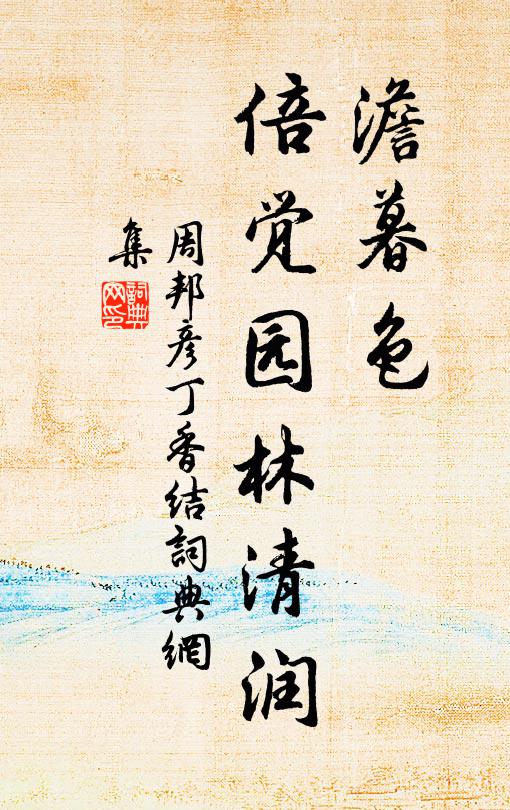 澹暮色
倍觉园林清润
周邦彦丁香结詞典網
集
詞典
网印